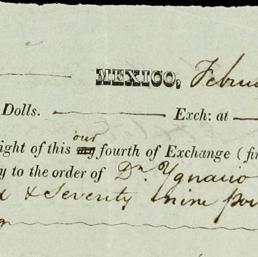 MEXICO, Febru
Dolls. Exch: at
our
ight of this my fourth of Exchange (fi
y to the order of Dn. Ygnacio
d & Seventy nine pou